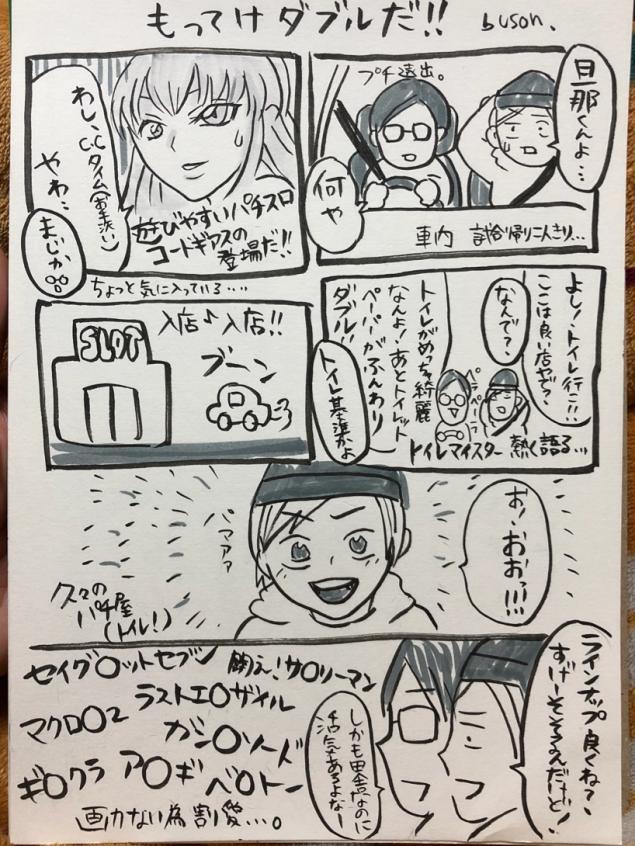 もってけダブルだ!! buson.
旦那くんよ…
プチ遠出。
何や
車内 試合帰り二人きり…
わし、C.C
タイム(お手洗い)
やわ…
まじか
遊びやすいパチスロ
コードギアスの
登場だ!!
ちょっと気に入っている….
よし!、トイレ行こ!!
ここは良い店やで?
なんで?
トイレがめっちゃ綺麗
なんよ!あとトイレット
ペーパーがふんわり
ダブル!!
ペラペーラ
トイレ基準かよ
トイレマイスター 熱く語る…
入店♪入店!!
SLOT
ブーン
お、おおっ!!!
パァァァ
久々の
パチ屋
(トイレ!)
ラインナップ良くね?、
すげーそろってるんだけど!
しかも田舎なのに
活気あるよなー
セイグ〇ットセブン 闘え!サ〇リーマン
ラストエ〇ザイル
マクロ〇2 ガン〇ソード
ギ〇クラ ア〇ギ ベ〇トー
画力ない為割愛…。